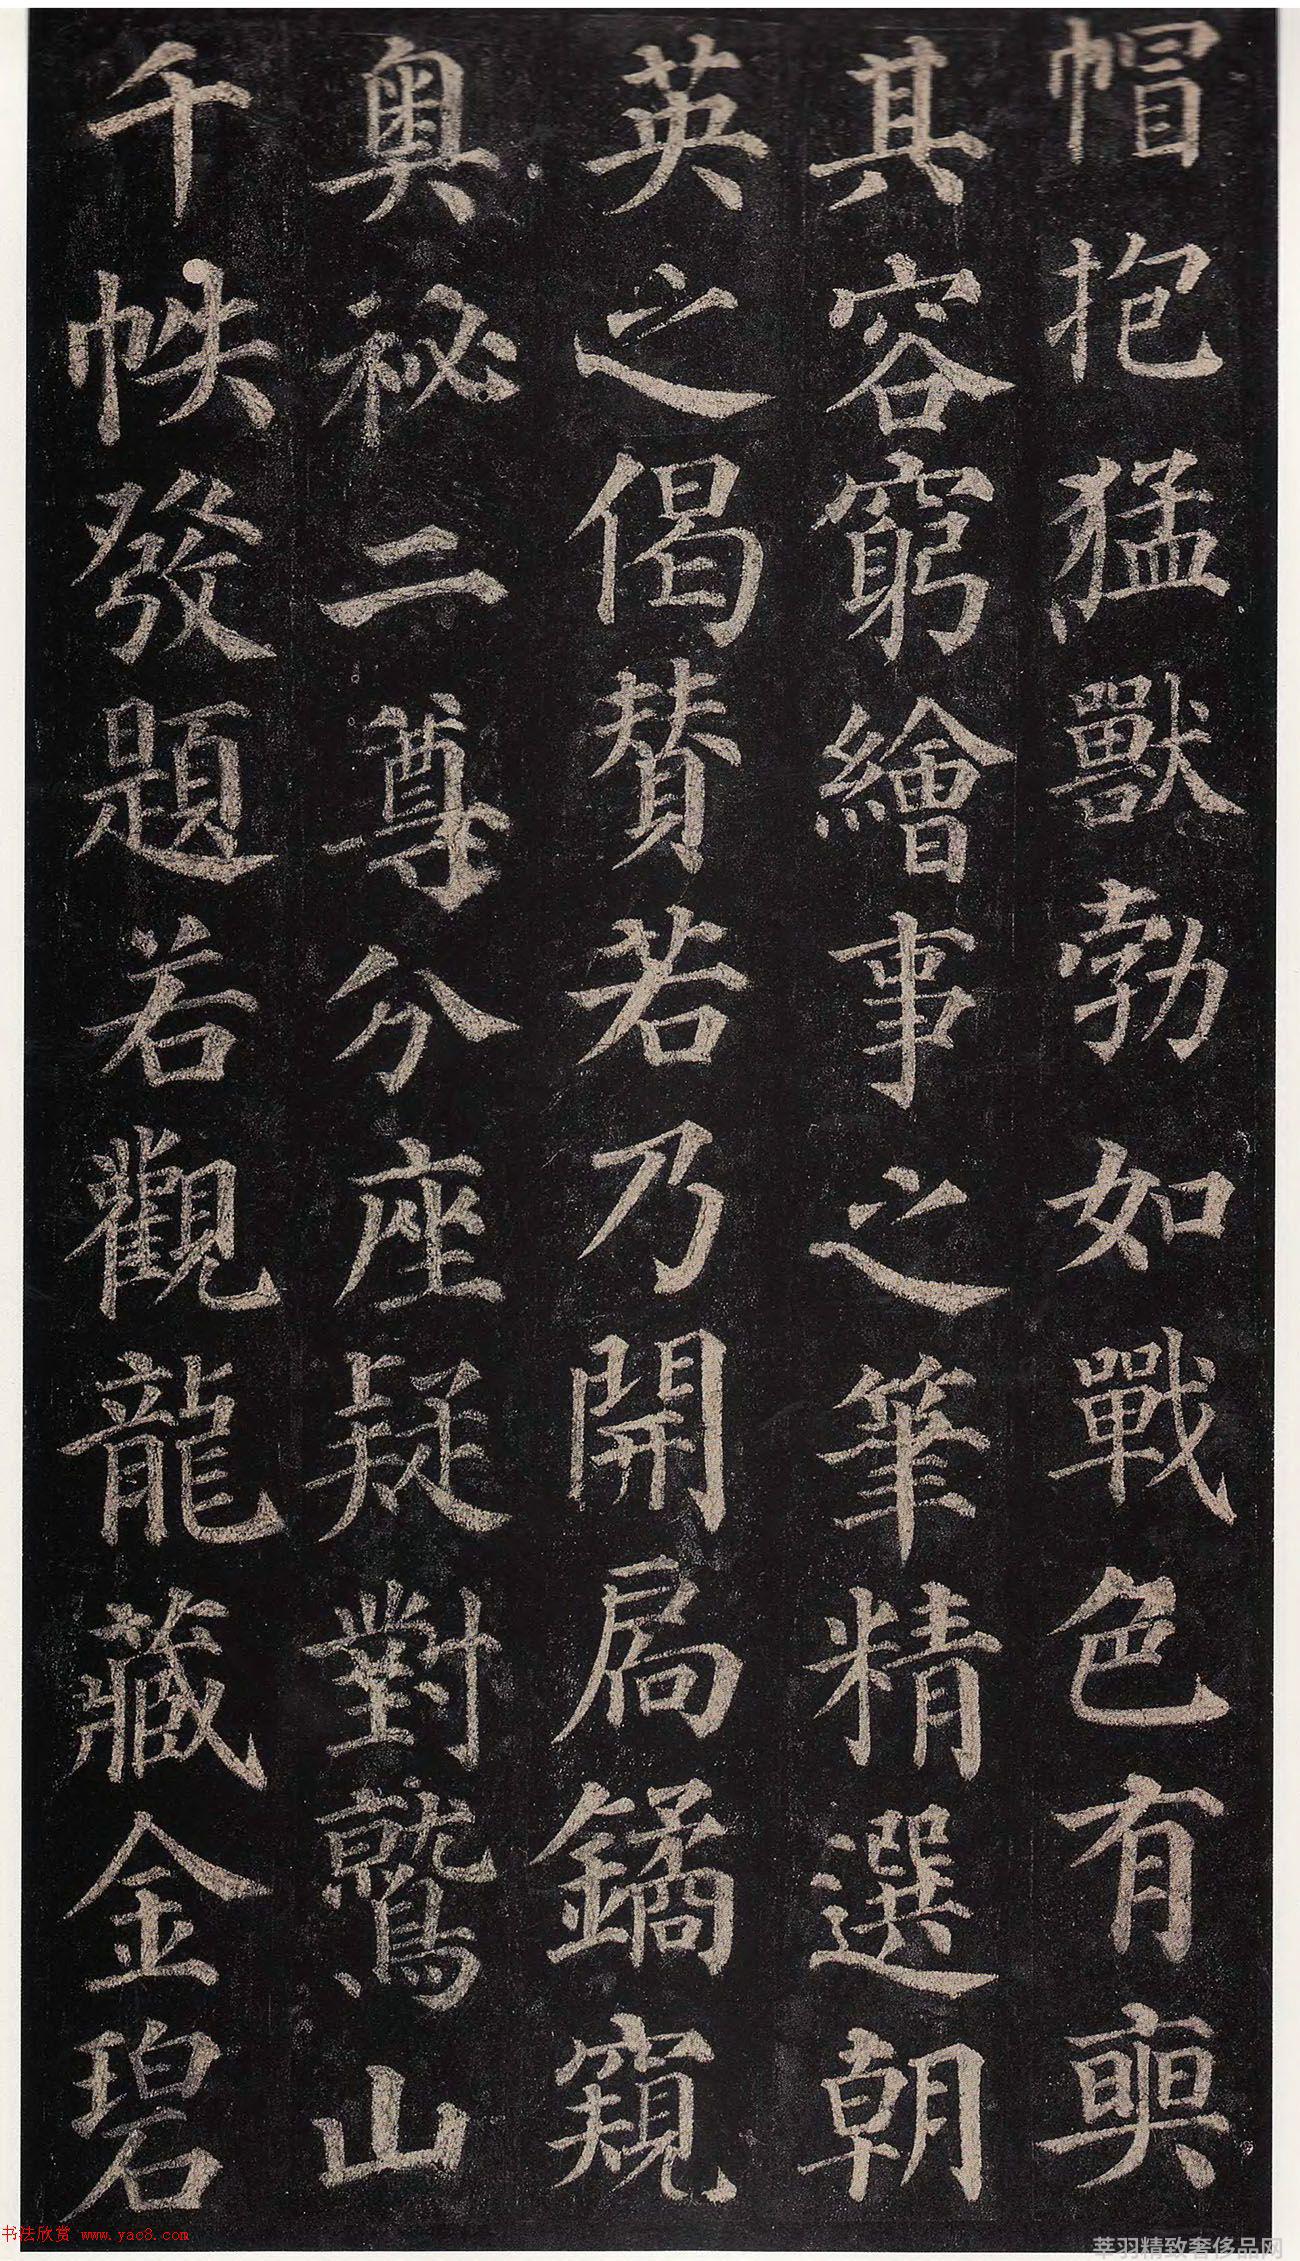 帽抱猛獸勃如戰色有奭
其容窮繪事之筆精選朝
英之偈賛若乃開扄鐍窺
奥祕二尊分座疑對鷲山
千帙發題若觀龍藏金碧
书法欣赏 www.yac8.com
莘羽精致奢侈品网